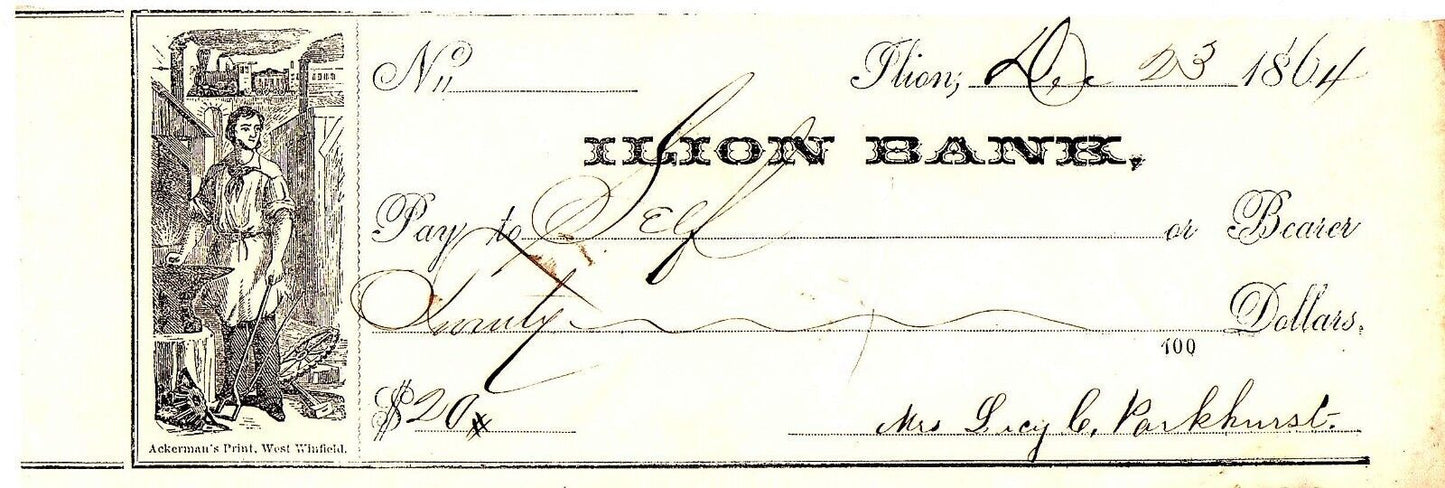 No. Ilion, Dec 23 1864
ILION BANK,
Pay to Self or Bearer
Twenty Dollars.
100
$20 Mrs Lucy C. Parkhurst.
Ackerman's Print, West Winfield.